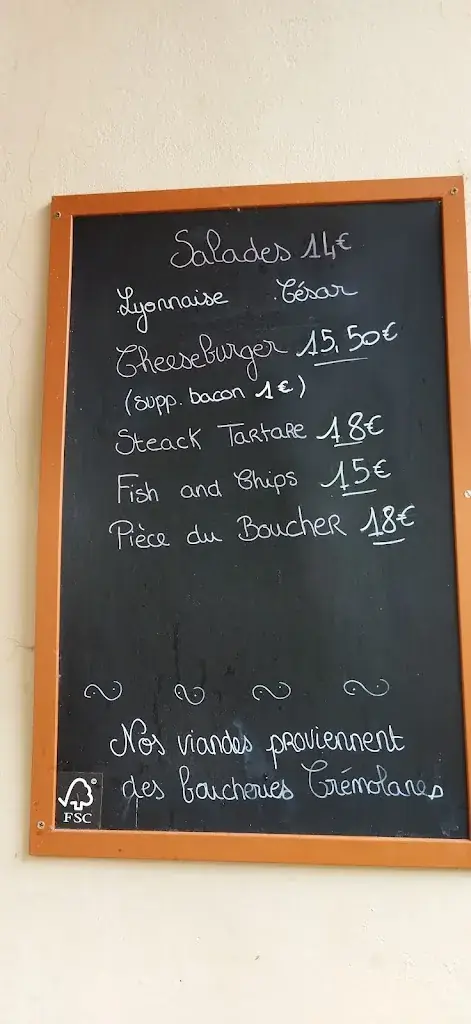 Salades 14€
Lyonnaise César
Cheeseburger 15,50€
(supp. bacon 1€)
Steack Tartare 18€
Fish and Chips 15€
Pièce du Boucher 18€
Nos viandes proviennent
des boucheries Crémolanes
FSC